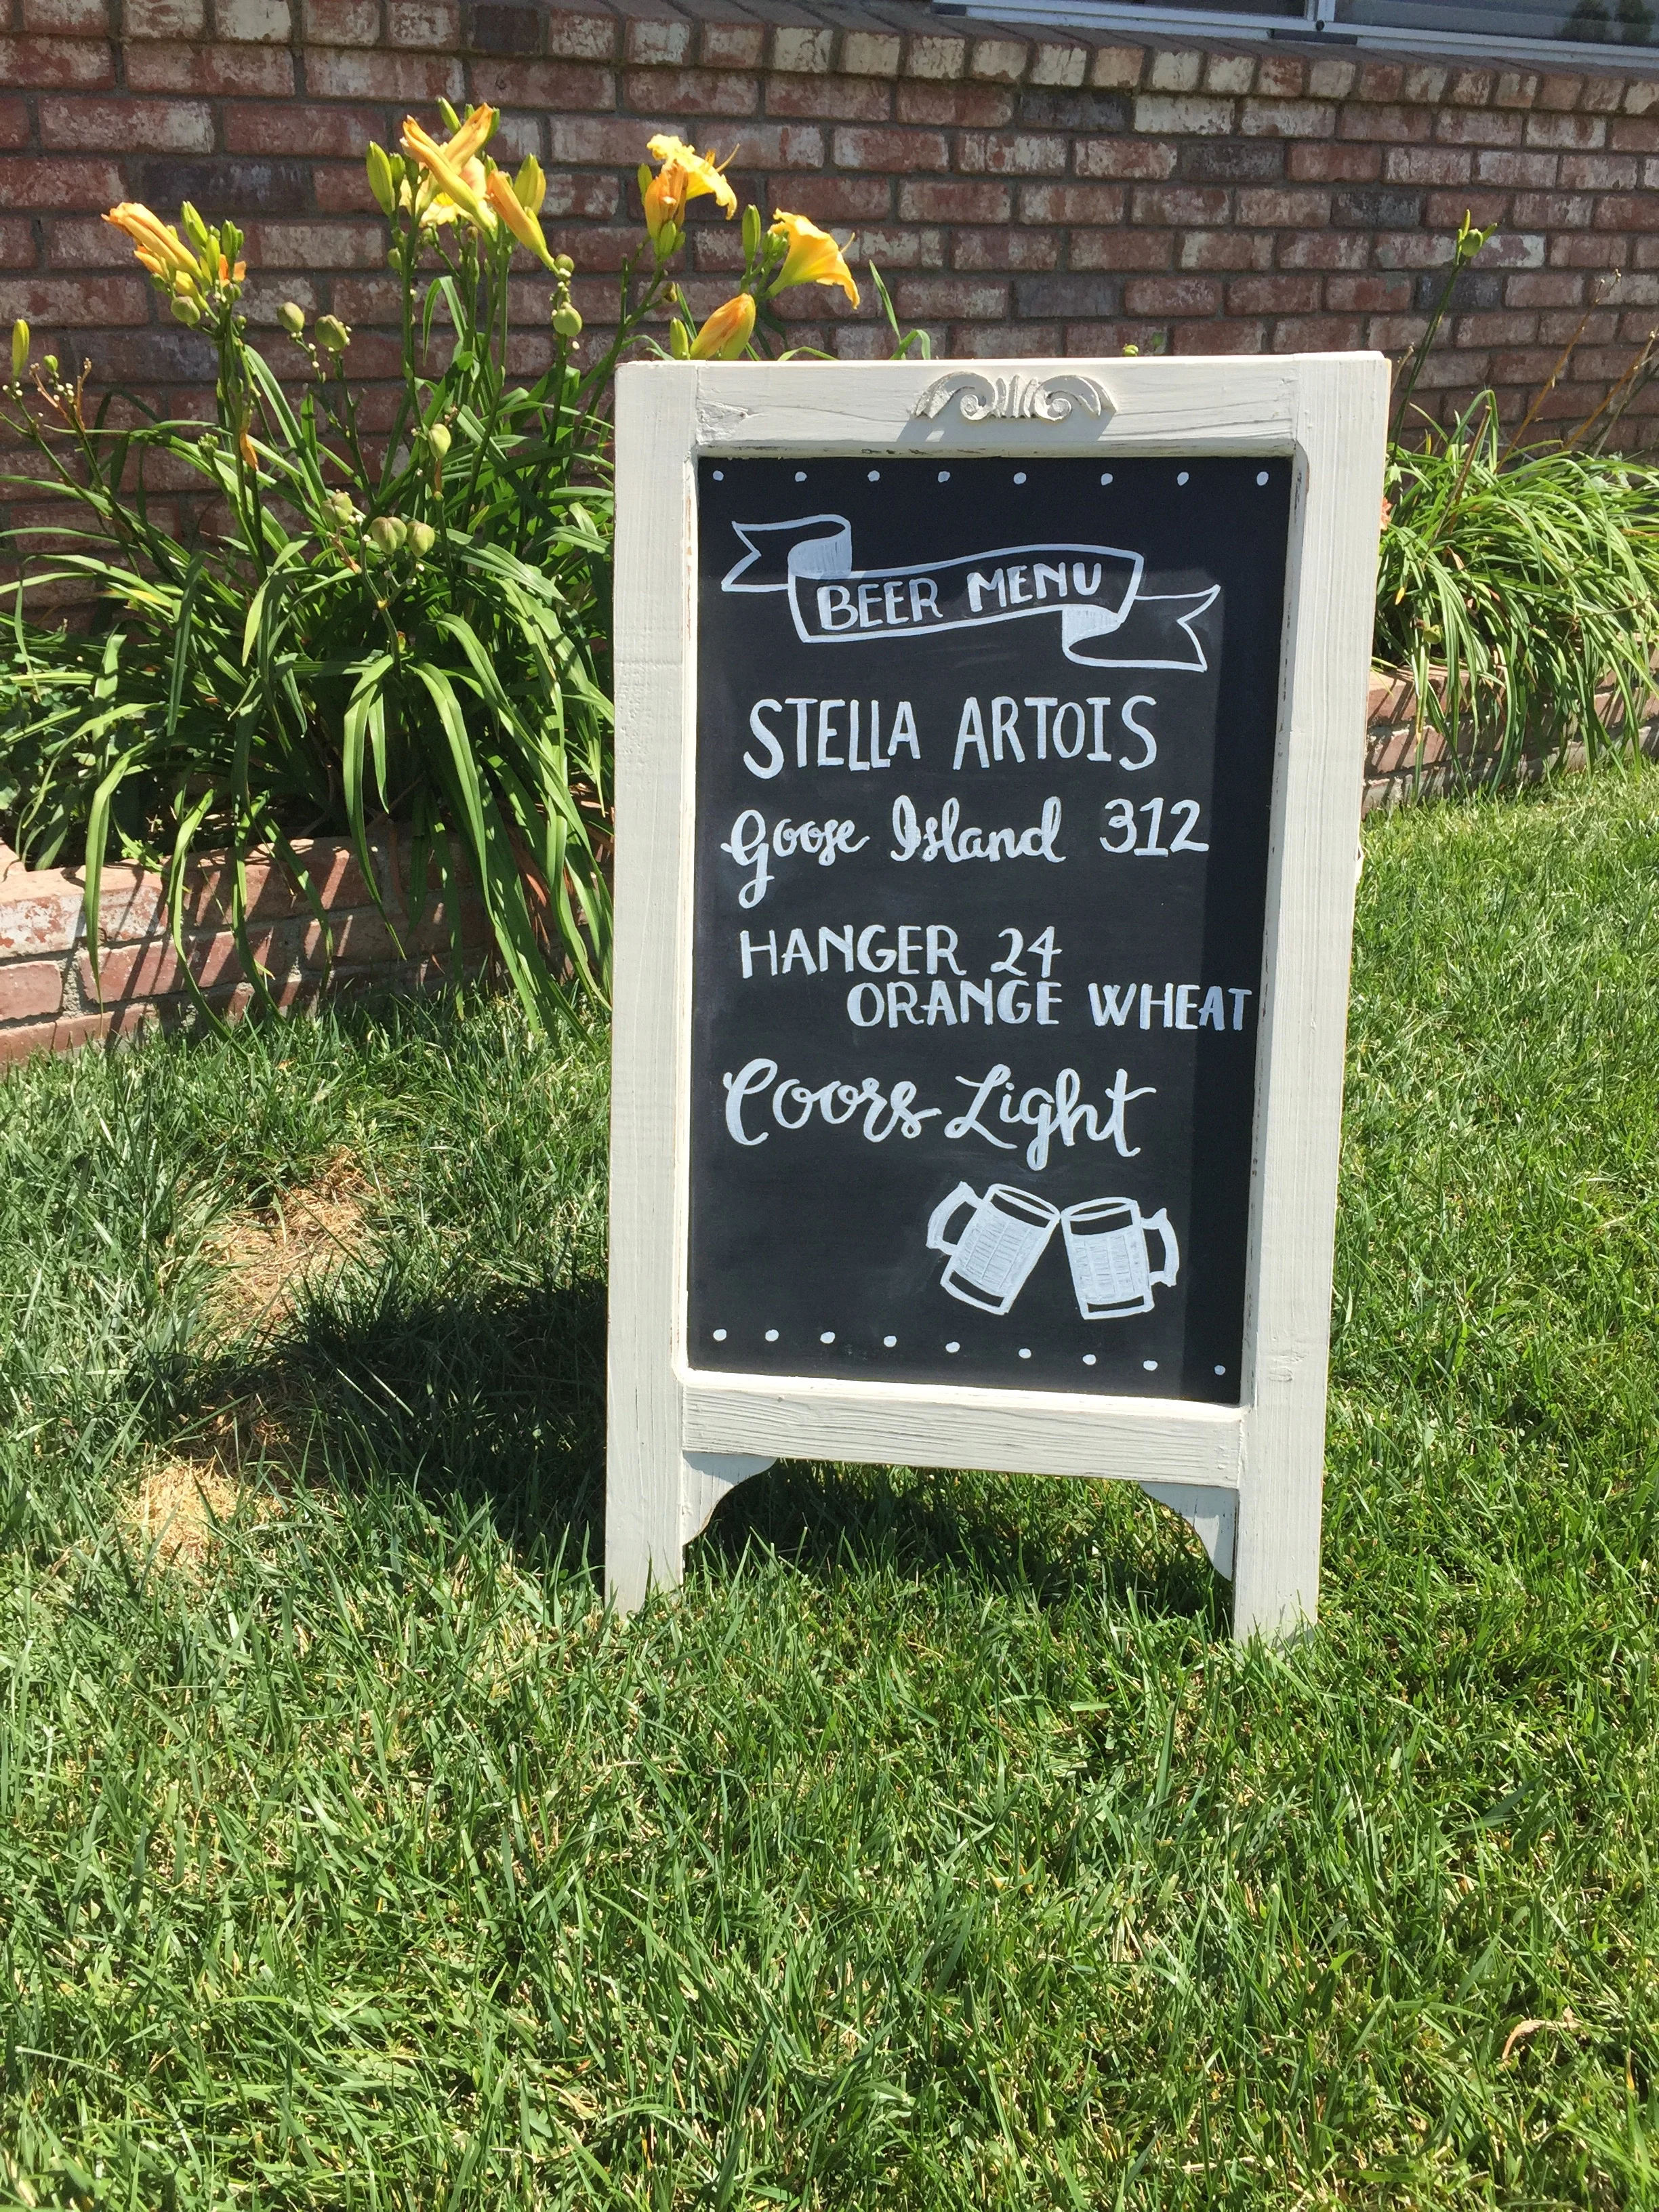 BEER MENU
STELLA ARTOIS
Goose Island 312
HANGER 24
ORANGE WHEAT
Coors Light